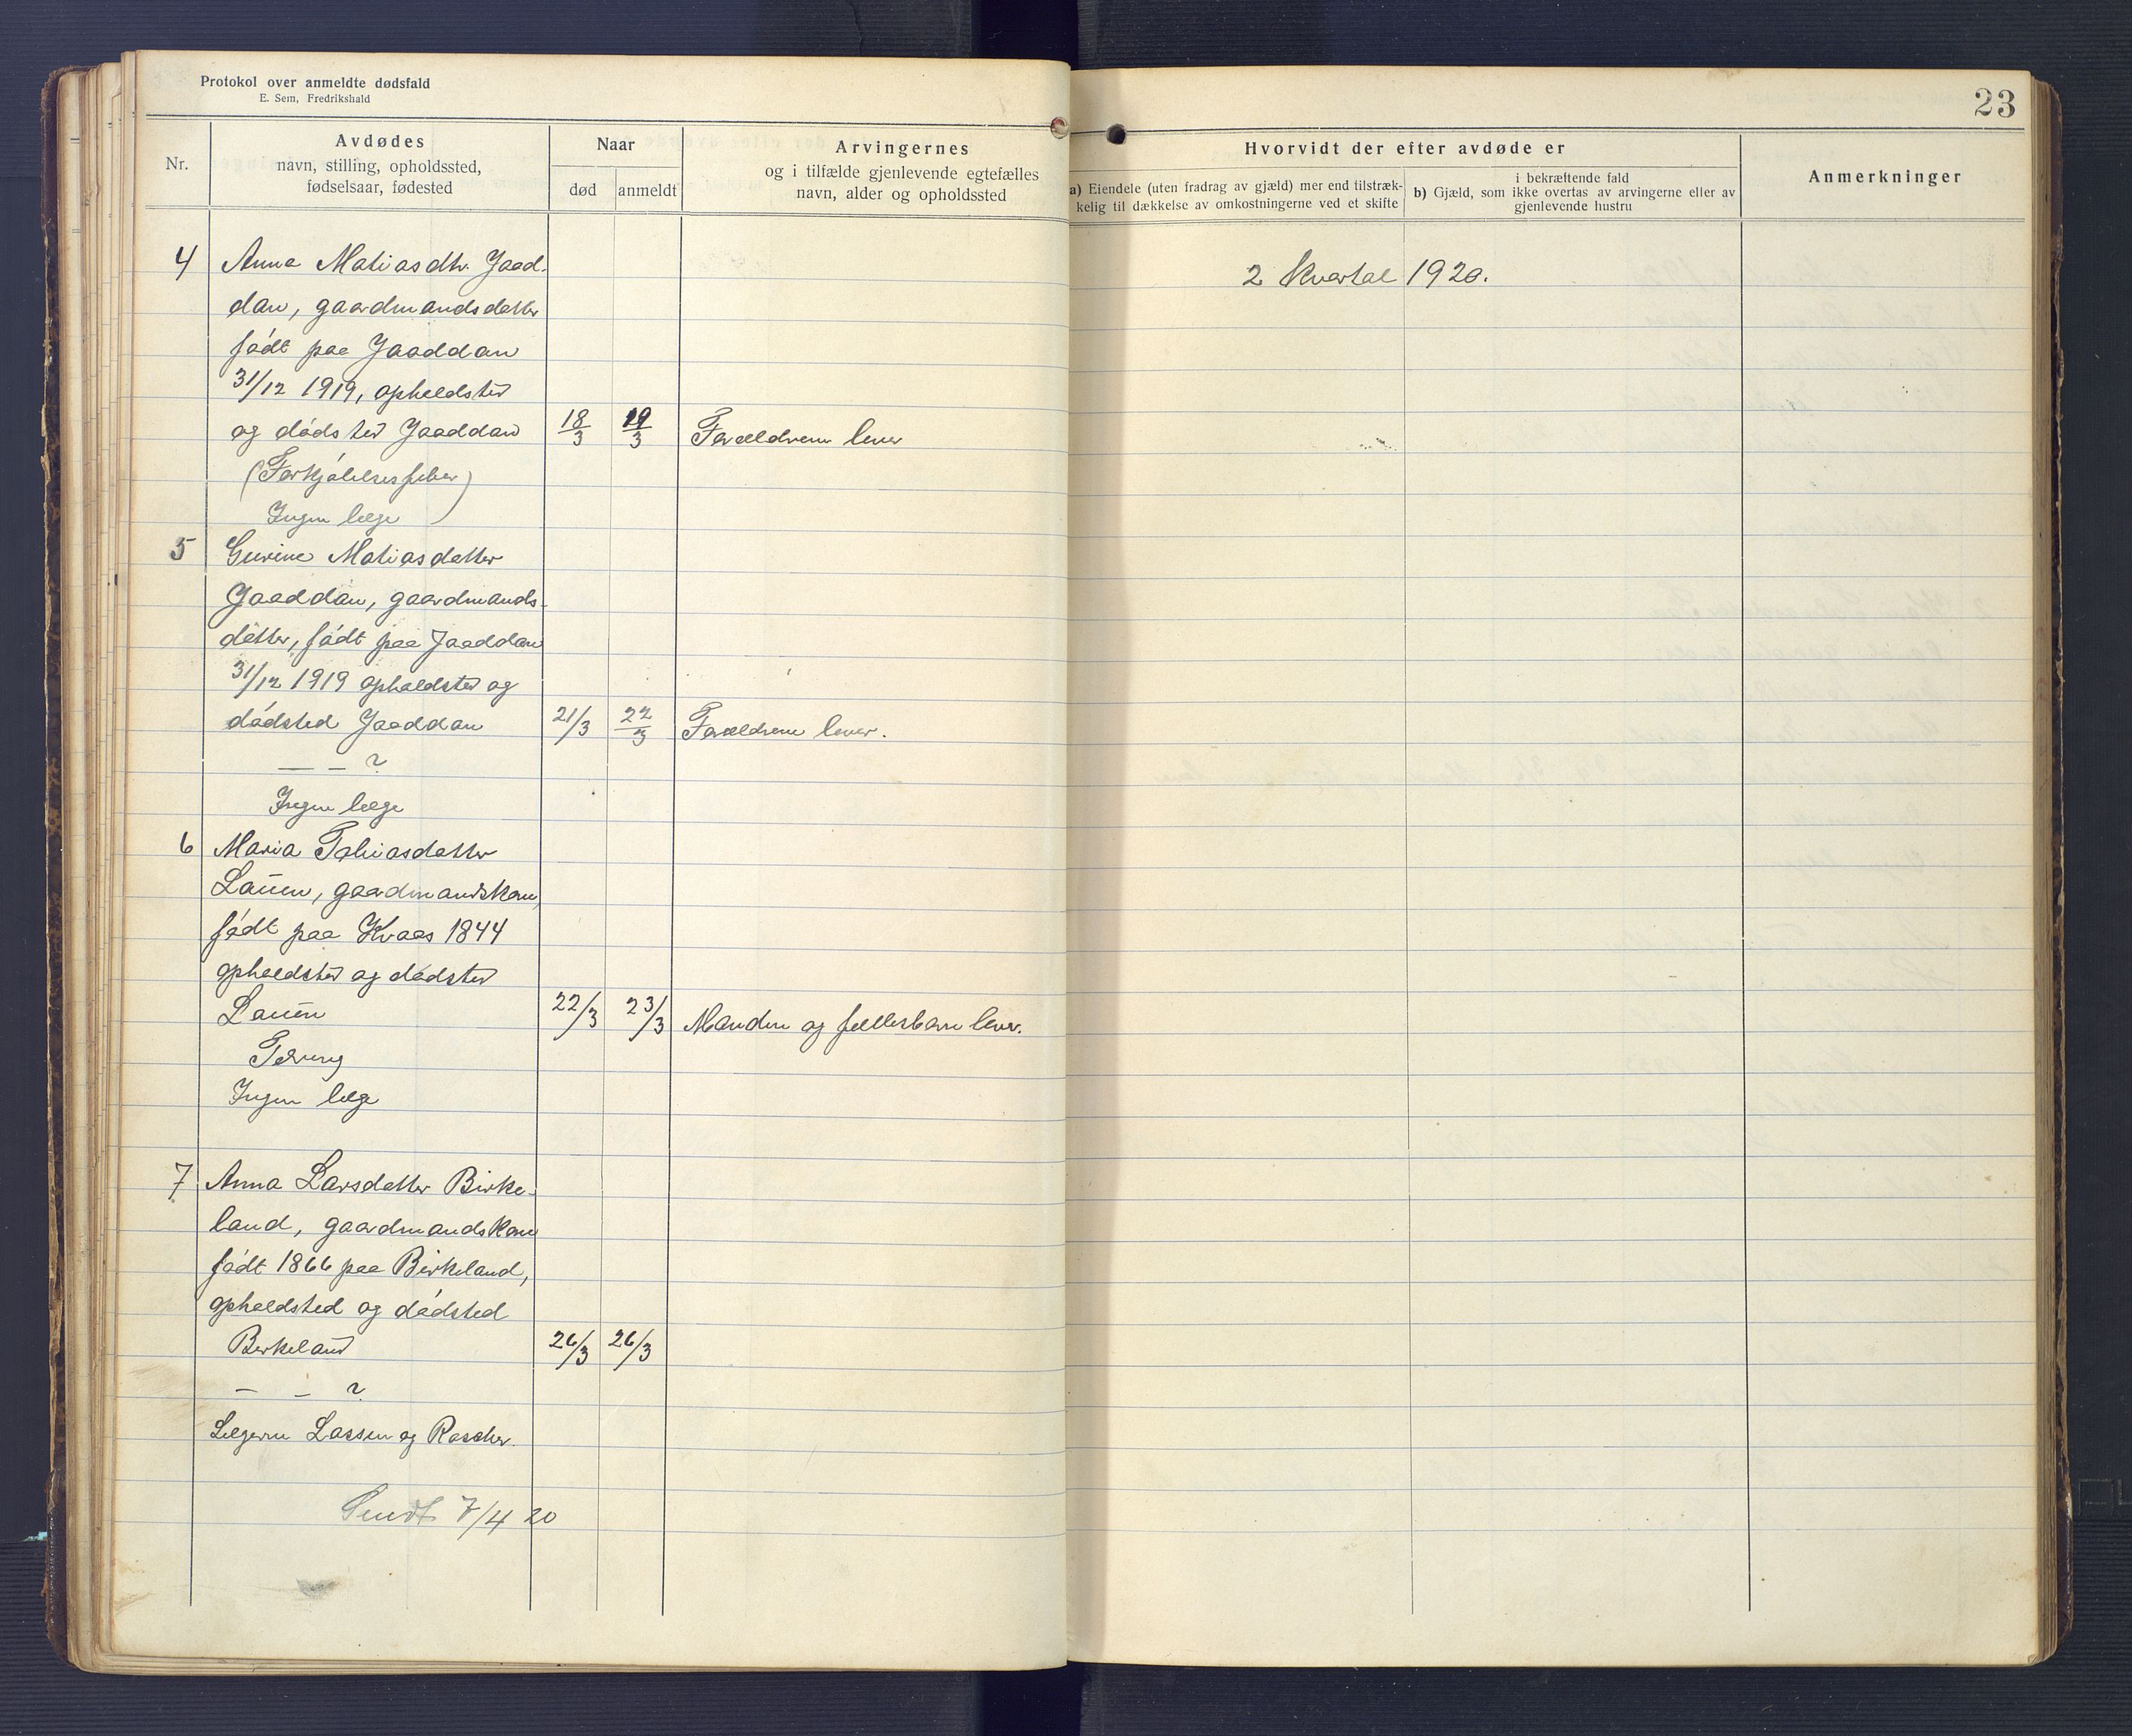 Protokol over anmeldte dødsfald
E. Sem, Fredrikshald
23
Nr.
Avdødes
navn, stilling, opholdssted,
fødselsaar, fødested
Naar
død
anmeldt
Arvingernes
og i tilfælde gjenlevende egtefælles
navn, alder og opholdssted
Hvorvidt der efter avdøde er
a) Eiendele (uten fradrag av gjæld) mer end tilstræk-
kelig til dækkelse av omkostningerne ved et skifte
i bekræftende fald
b) Gjæld, som ikke overtas av arvingerne eller av
gjenlevende hustru
Anmerkninger
4 Anna Matiasdtr. Jaad-
dan, gaardmandsdatter
født paa Jaaddan
31/12 1919, opholdsted
og dødsted Jaaddan 18/3 19/3 Forældrene lever
(Forkjølelsesfeber)
Ingen læge
5 Gurine Matiasdatter
Jaaddan, gaardmands-
datter, født paa Jaaddan
31/12 1919 opholdsted og
dødsted Jaaddan 21/3 22/3 Forældrene lever.
— — ?
Ingen læge
6 Maria Tobiasdatter
Lauen, gaardmandskone,
født paa Kvaas 1844
opholdsted og dødsted
Lauen 22/3 23/3 Manden og fellesbarn lever.
Tæring
Ingen læge
7 Anna Larsdatter Birke-
land, gaardmandskone
født 1866 paa Birkeland,
opholdsted og dødsted
Birkeland 26/3 26/3
— — ?
Lægerne Lassen og Rascher.
Sendt 7/4 20
2 Kvartal 1920.